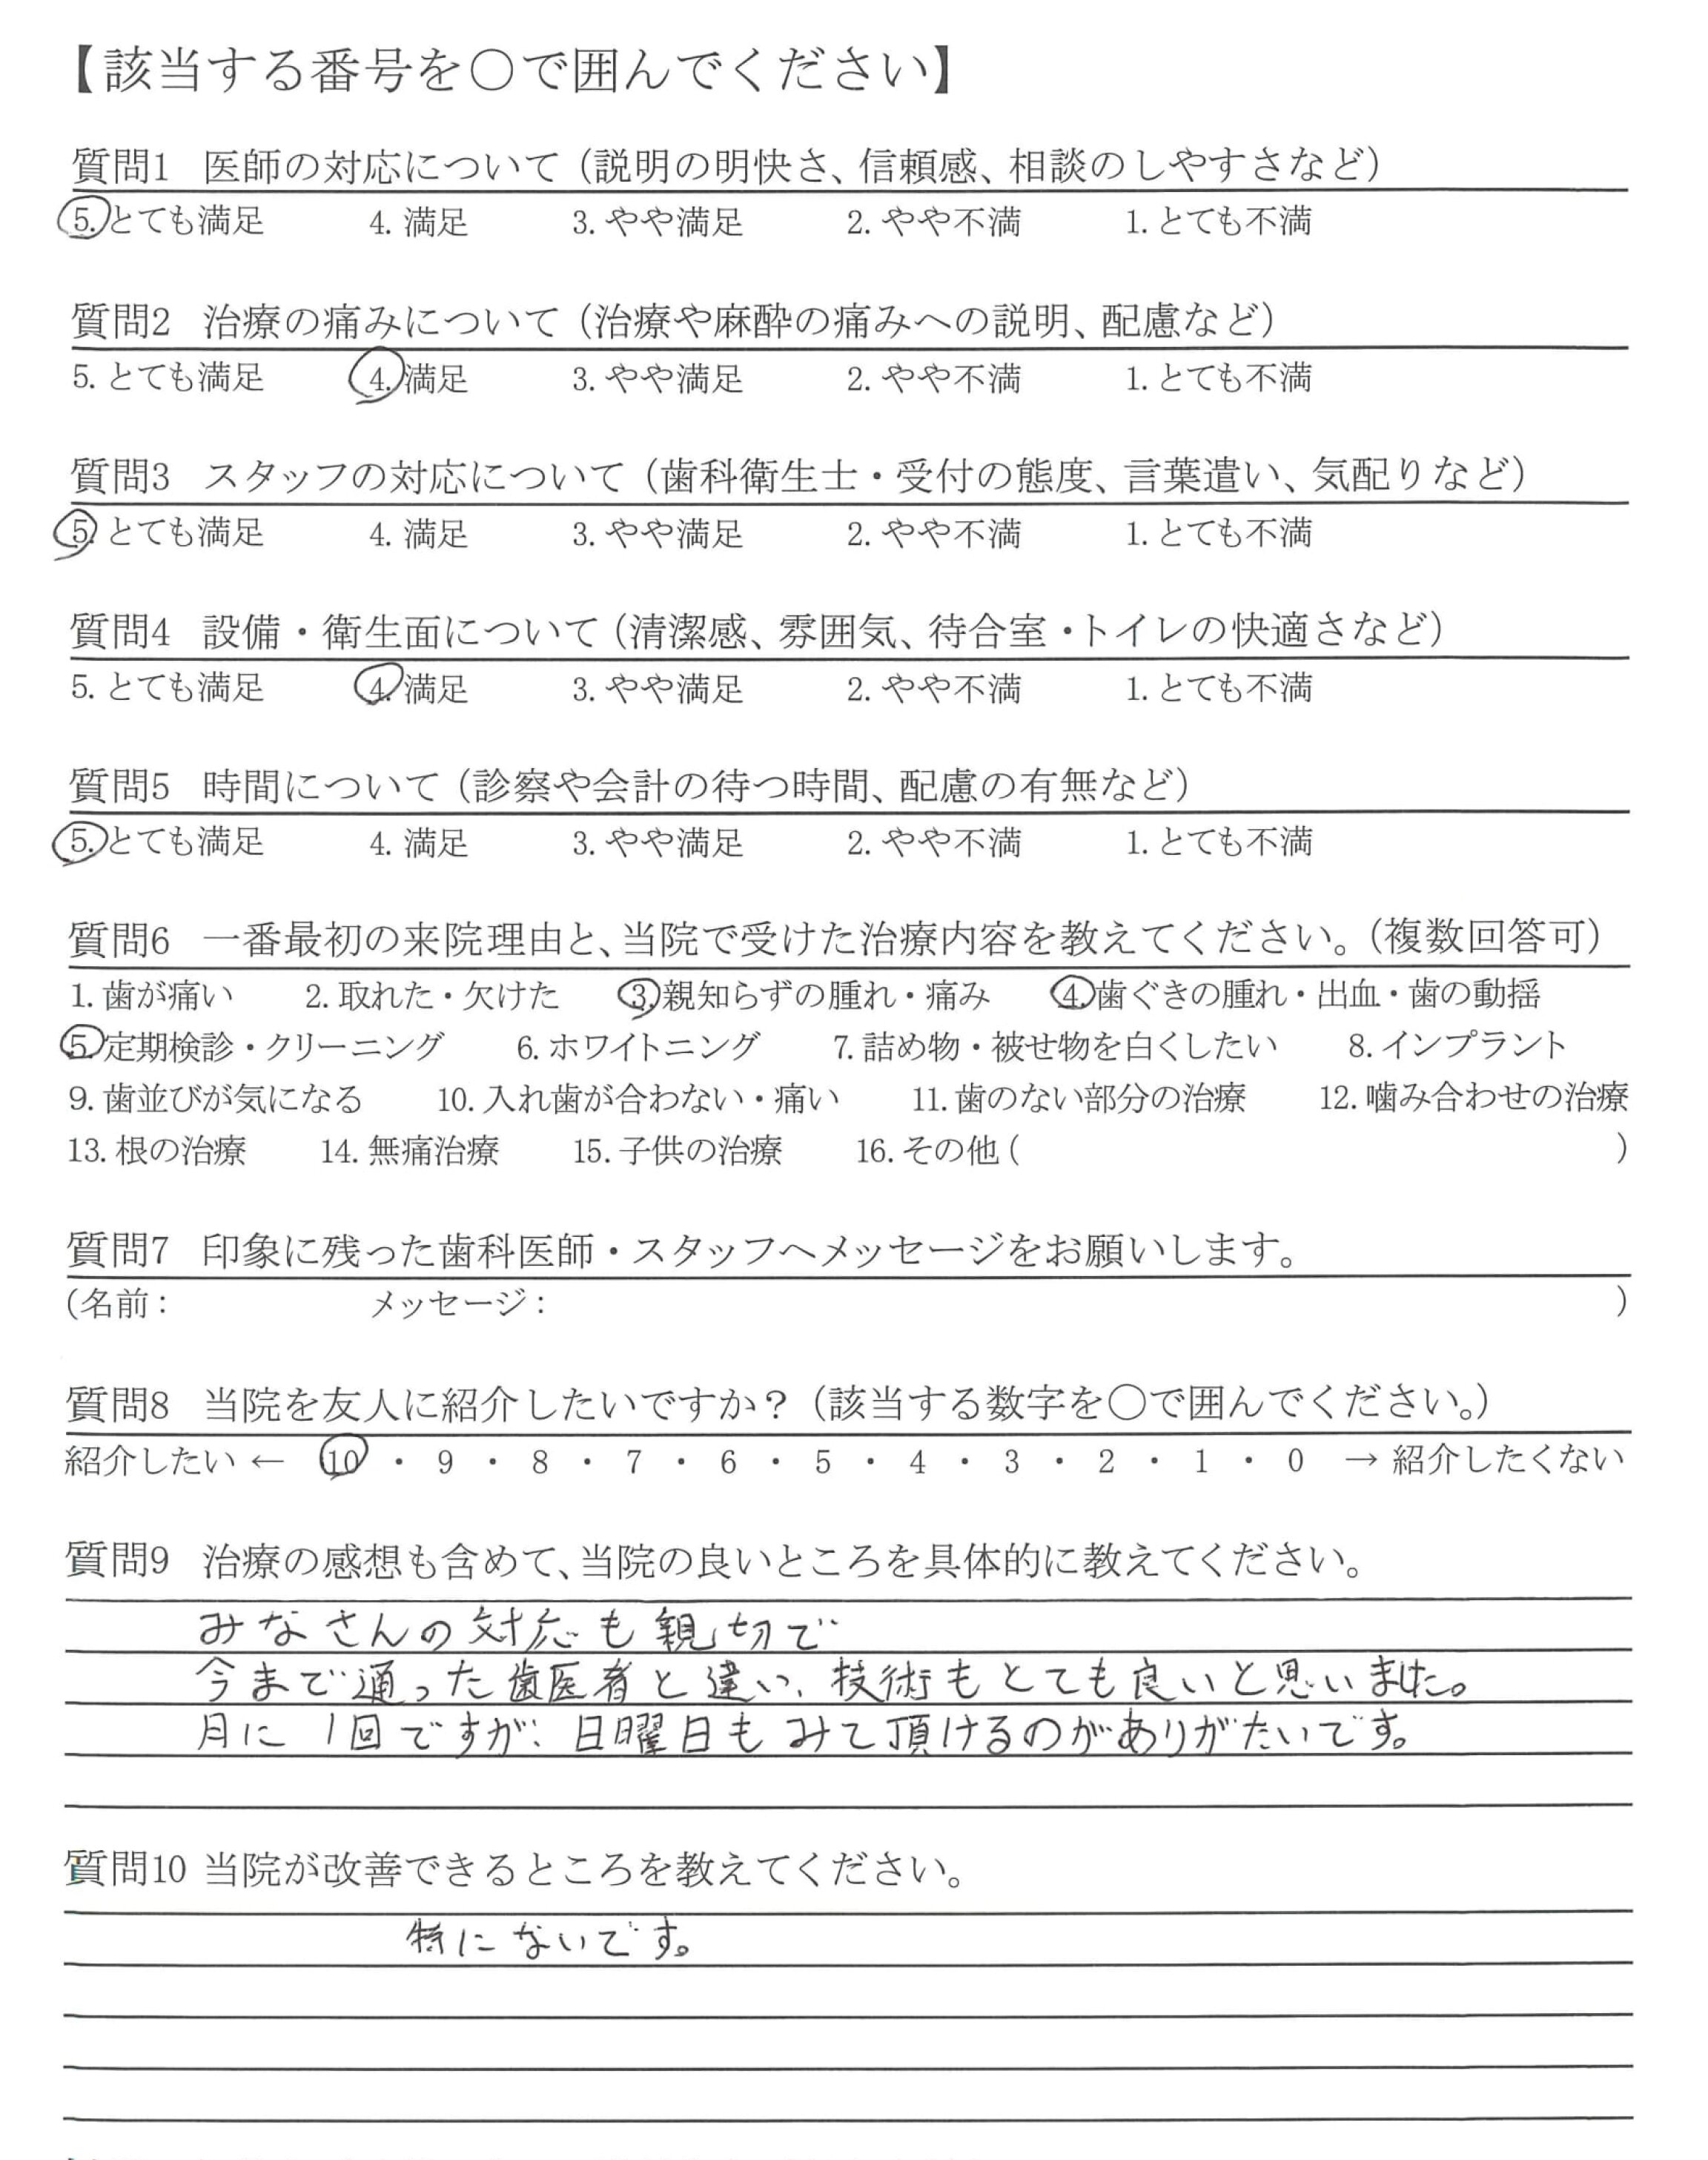 【該当する番号を○で囲んでください】
質問1 医師の対応について（説明の明快さ、信頼感、相談のしやすさなど）
5. とても満足 4. 満足 3. やや満足 2. やや不満 1. とても不満
質問2 治療の痛みについて（治療や麻酔の痛みへの説明、配慮など）
5. とても満足 4. 満足 3. やや満足 2. やや不満 1. とても不満
質問3 スタッフの対応について（歯科衛生士・受付の態度、言葉遣い、気配りなど）
5. とても満足 4. 満足 3. やや満足 2. やや不満 1. とても不満
質問4 設備・衛生面について（清潔感、雰囲気、待合室・トイレの快適さなど）
5. とても満足 4. 満足 3. やや満足 2. やや不満 1. とても不満
質問5 時間について（診察や会計の待つ時間、配慮の有無など）
5. とても満足 4. 満足 3. やや満足 2. やや不満 1. とても不満
質問6 一番最初の来院理由と、当院で受けた治療内容を教えてください。（複数回答可）
1. 歯が痛い 2. 取れた・欠けた 3. 親知らずの腫れ・痛み 4. 歯ぐきの腫れ・出血・歯の動揺
5. 定期検診・クリーニング 6. ホワイトニング 7. 詰め物・被せ物を白くしたい 8. インプラント
9. 歯並びが気になる 10. 入れ歯が合わない・痛い 11. 歯のない部分の治療 12. 噛み合わせの治療
13. 根の治療 14. 無痛治療 15. 子供の治療 16. その他（ ）
質問7 印象に残った歯科医師・スタッフへメッセージをお願いします。
（名前： メッセージ： ）
質問8 当院を友人に紹介したいですか？（該当する数字を○で囲んでください。）
紹介したい ← 10 ・ 9 ・ 8 ・ 7 ・ 6 ・ 5 ・ 4 ・ 3 ・ 2 ・ 1 ・ 0 → 紹介したくない
質問9 治療の感想も含めて、当院の良いところを具体的に教えてください。
みなさんの対応も親切で
今まで通った歯医者と違い、技術もとても良いと思いました。
月に1回ですが、日曜日もみて頂けるのがありがたいです。
質問10 当院が改善できるところを教えてください。
特にないです。